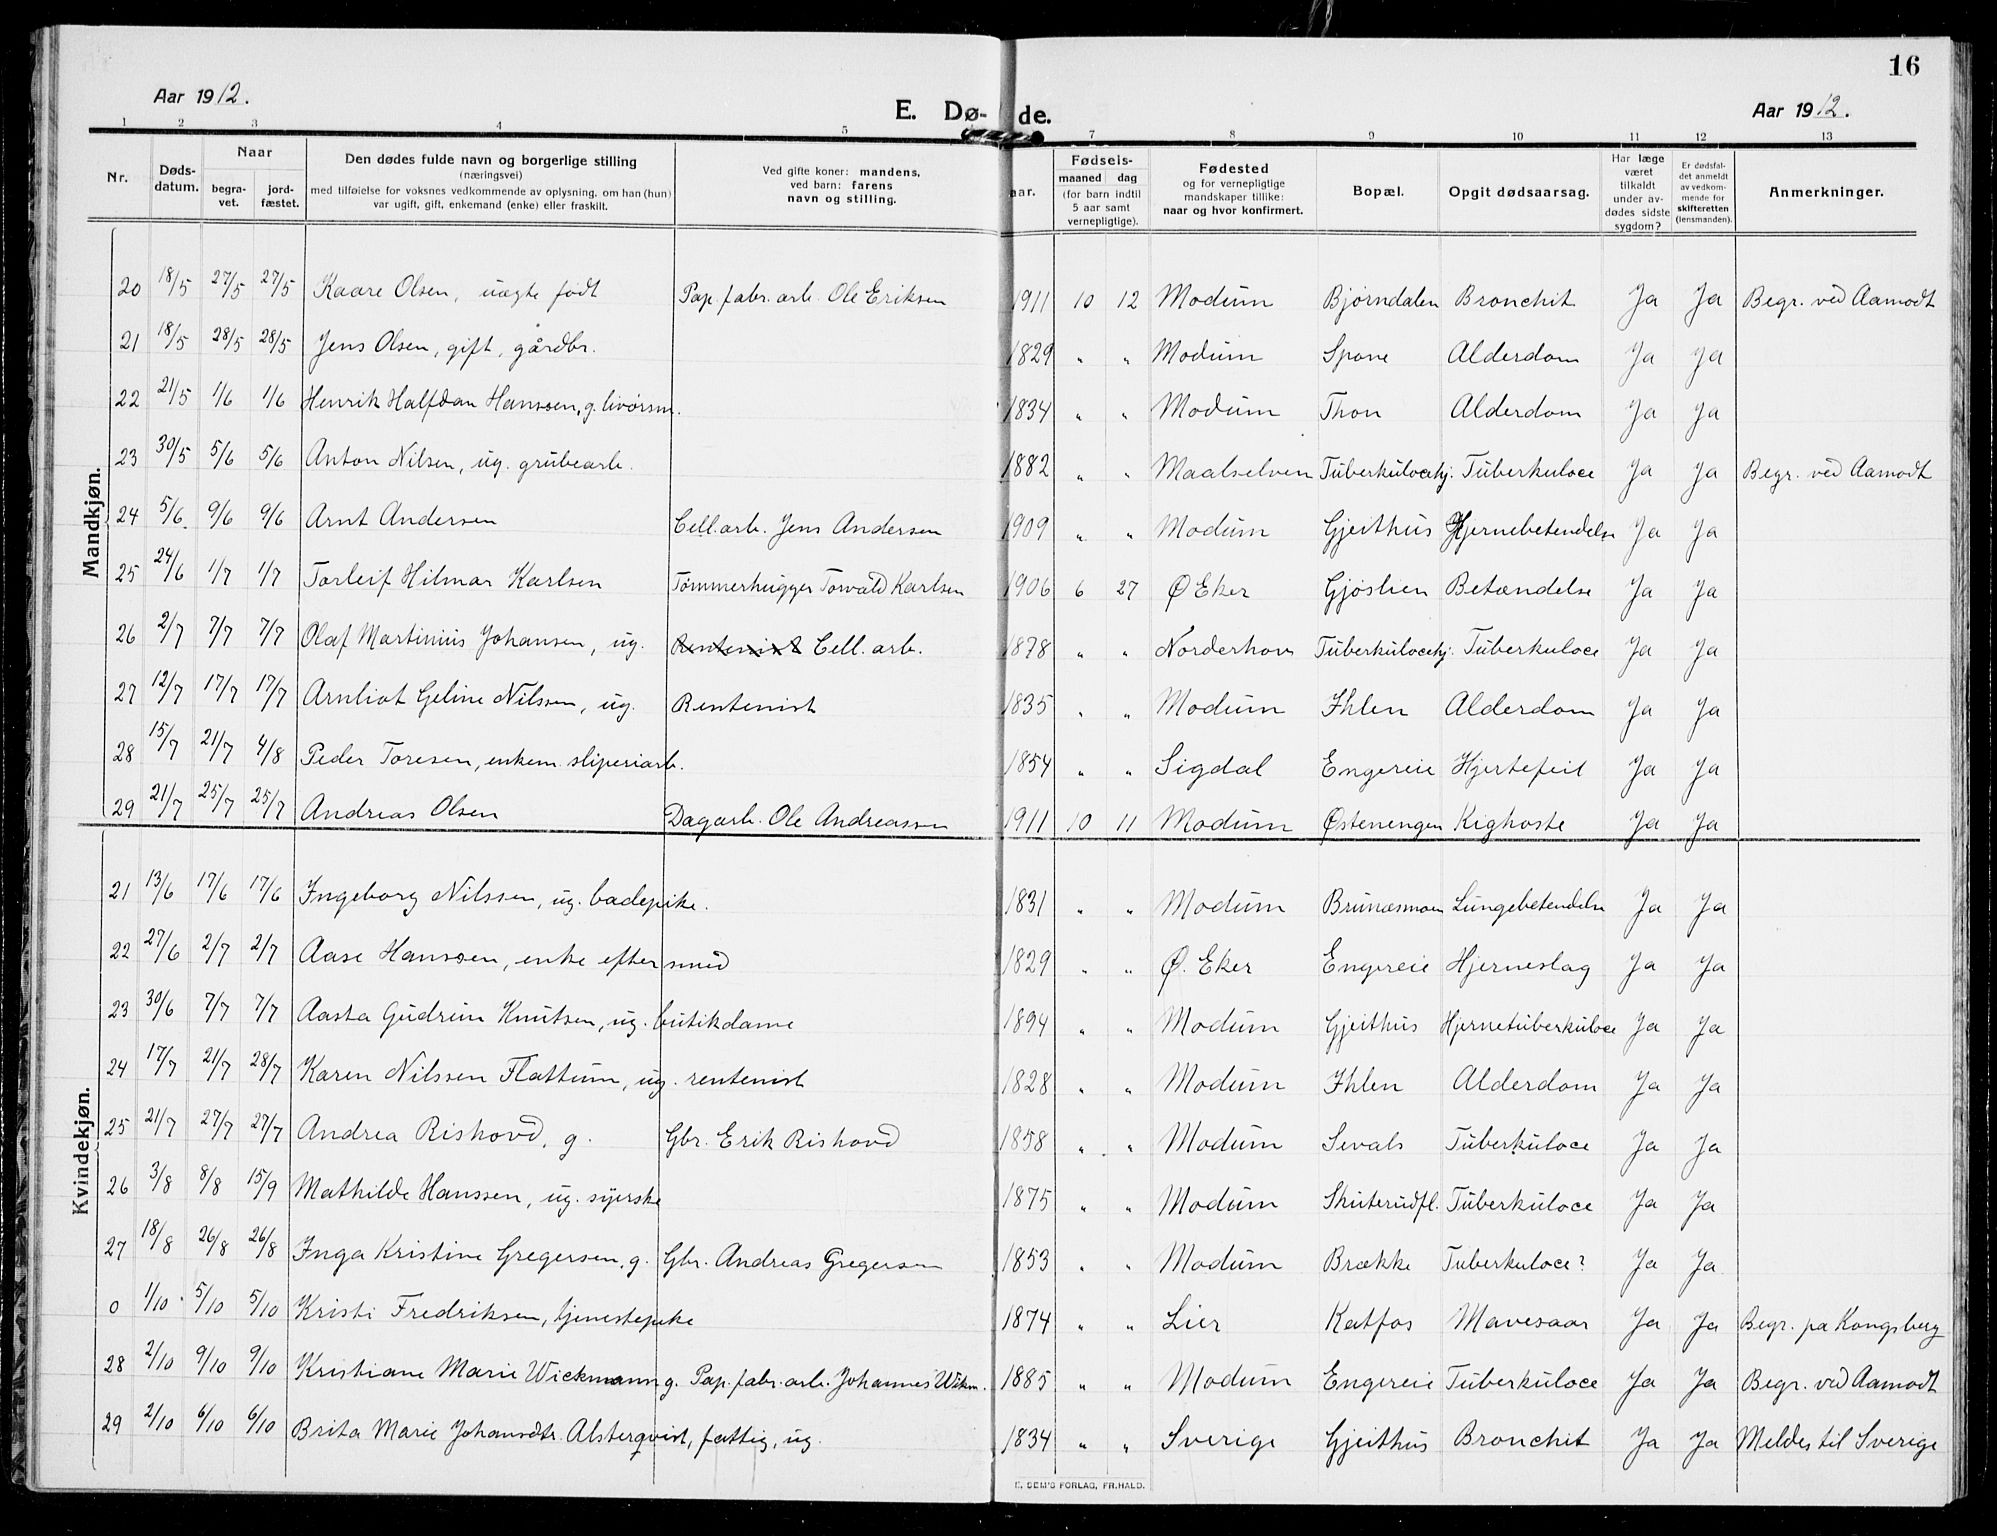 16
Aar 1912.
E. Dø- de.
Aar 1912.
1 2 3 4 5 7 8 9 10 11 12 13
Nr.
Døds-
datum.
Naar
begra-
vet.
jord-
fæstet.
Den dødes fulde navn og borgerlige stilling
(næringsvei)
med tilføielse for voksnes vedkommende av oplysning, om han (hun)
var ugift, gift, enkemand (enke) eller fraskilt.
Ved gifte koner: mandens,
ved barn: farens
navn og stilling.
aar.
Fødsels-
maaned dag
(for barn indtil
5 aar samt
vernepligtige).
Fødested
og for vernepligtige
mandskaper tillike:
naar og hvor konfirmert.
Bopæl.
Opgit dødsaarsag.
Har læge
været
tilkaldt
under av-
dødes sidste
sygdom?
Er dødsfal-
det anmeldt
av vedkom-
mende for
skifteretten
(lensmanden).
Anmerkninger.
Mandkjøn.
20 18/5 27/5 27/5 Kaare Olsen, uægte født Pap. fabr. arb. Ole Eriksen 1911 10 12 Modum Bjørndalen Bronchit Ja Ja Begr. ved Aamodt
21 18/5 28/5 28/5 Jens Olsen, gift, gårdbr. 1829 " " Modum Spone Alderdom Ja Ja
22 21/5 1/6 1/6 Henrik Halfdan Hanssen, g. livørsm. 1834 " " Modum Thon Alderdom Ja Ja
23 30/5 5/6 5/6 Anton Nilsen, ug. grubearb. 1882 " " Maalselven Tuberkulocehj. Tuberkuloce Ja Ja Begr. ved Aamodt
24 5/6 9/6 9/6 Arnt Andersen Cell. arb. Jens Andersen 1909 " " Modum Gjeithus Hjernebetendelse Ja Ja
25 24/6 1/7 1/7 Torleif Hilmar Karlsen Tømmerhugger Torvald Karlsen 1906 6 27 Ø Eker Gjøslien Betændelse Ja Ja
26 2/7 7/7 7/7 Olaf Martinius Johansen, ug. Rentenist Cell. arb. 1878 " " Norderhov Tuberkulocehj. Tuberkuloce Ja Ja
27 12/7 17/7 17/7 Arnliot Geline Nilssen, ug. Rentenist 1835 " " Modum Ihlen Alderdom Ja Ja
28 15/7 21/7 4/8 Peder Toresen, enkem. sliperiarb. 1854 " " Sigdal Engereie Hjertefeil Ja Ja
29 21/7 25/7 25/7 Andreas Olsen Dagarb. Ole Andreassen 1911 10 11 Modum Østenengen Kighoste Ja Ja
Kvindekjøn.
21 13/6 17/6 17/6 Ingeborg Nilssen, ug. badepike. 1831 " " Modum Brunæsmoen Lungebetendelse Ja Ja
22 27/6 2/7 2/7 Aase Hanssen, enke efter smed 1829 " " Ø. Eker Engereie Hjerneslag Ja Ja
23 30/6 7/7 7/7 Aasta Gudrun Knutsen, ug. butikdame 1894 " " Modum Gjeithus Hjernetuberkuloce Ja Ja
24 17/7 21/7 28/7 Karen Nilssen Flattum, ug. rentenist 1828 " " Modum Ihlen Alderdom Ja Ja
25 21/7 27/7 27/7 Andrea Rishovd, g. Gbr. Erik Rishovd 1858 " " Modum Sevals Tuberkuloce Ja Ja
26 3/8 8/8 15/9 Mathilde Hanssen, ug. syerske 1875 " " Modum Skuterudfl. Tuberkuloce Ja Ja
27 18/8 26/8 26/8 Inga Kristine Gregersen, g. Gbr. Andreas Gregersen 1853 " " Modum Brække Tuberkuloce? Ja Ja
0 1/10 5/10 5/10 Kristi Fredriksen, tjenestepike 1874 " " Lier Katfos Mavesaar Ja Ja Begr. pa Kongsberg
28 2/10 9/10 9/10 Kristiane Marie Wickmann g. Pap. fabr. arb. Johannes Wikm. 1885 " " Modum Engereie Tuberkuloce Ja Ja Begr. ved Aamodt
29 2/10 6/10 6/10 Brita Marie Johansdtr. Alsterqvist, fattig, ug. 1834 " " Sverige Gjeithus Bronchit Ja Ja Meldes til Sverige
E. SEM'S FORLAG, FR.HALD.